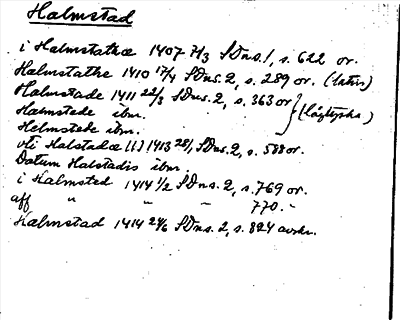 Halmstad
i Halmstathæ 1407 7/3 SDns. 1, s. 622 or.
Halmstathe 1410 17/4 SDns. 2, s. 289 or. (latin)
Halmstade 1411 22/3 SDns. 2, s. 363 or
Halmstede ibm. (lågtyska)
Helmstede ibm.
vti Halstadæ [!] 1413 28/1 SDns. 2, s. 588 or.
Datum Halstadis ibm.
i Halmsted 1414 1/2 SDns. 2, s. 769 or.
aff " " - 770. -
Halmstad 1414 24/6 SDns. 2, s. 824 avskr.